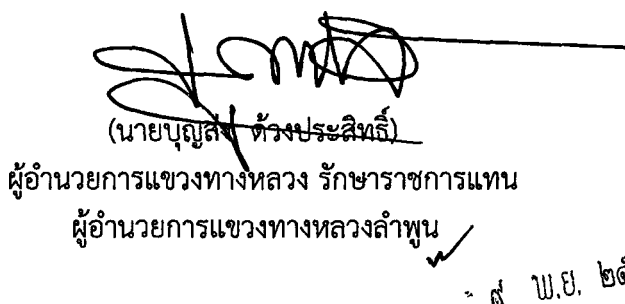 (นายบุญส่ง ด้วงประสิทธิ์)
ผู้อำนวยการแขวงทางหลวง รักษาราชการแทน
ผู้อำนวยการแขวงทางหลวงลำพูน
พ.ย.